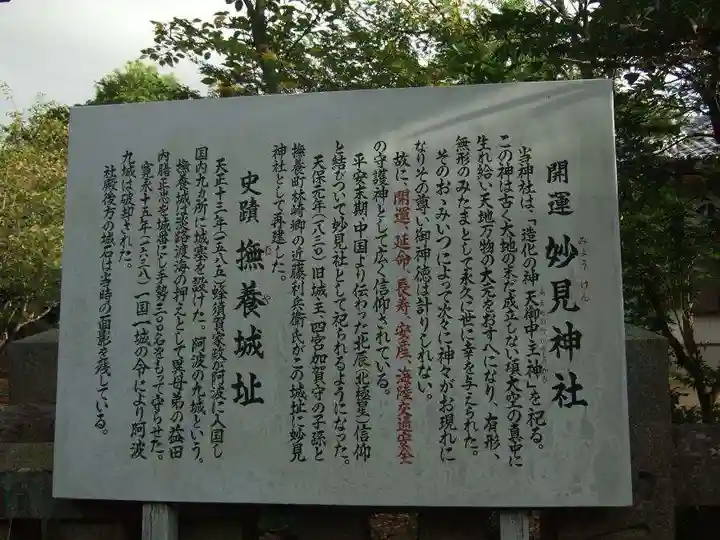 開運 妙見神社
みょうけん
当神社は、「造化の神 天御中主神」を祀る。
この神は古く大地の未だ成立しない頃大空の真中に
生れ給い天地万物の大元をお司人になり、有形、
無形のみたまとして永久に世に幸を与えられた。
そのおゝみいつによって次々に神々がお現れに
なりその尊い御神徳は計りしれない。
故に、開運、延命、長寿、安産、海陸交通安全
の守護神として広く信仰されている。
平安末期、中国より伝わった北辰(北極星)信仰
と結びついて妙見社として祀られるようになった。
天保元年(一八三〇)旧城主四宮加賀守の子孫と
撫養町林崎郷の近藤利兵衛氏がこの城址に妙見
神社として再建した。
史蹟 撫養城址
むや
天正十三年(一五八五)蜂須賀家政が阿波に入国し
国内九カ所に城塞を設けた。阿波の九城という。
撫養城は淡路渡海の押えとして異母弟の益田
内膳正忠を城番にし手勢三〇〇名をもって守らせた。
寛永十五年(一六三八)一国一城の令により阿波
九城は破却された。
社殿後方の城石は当時の面影を残している。